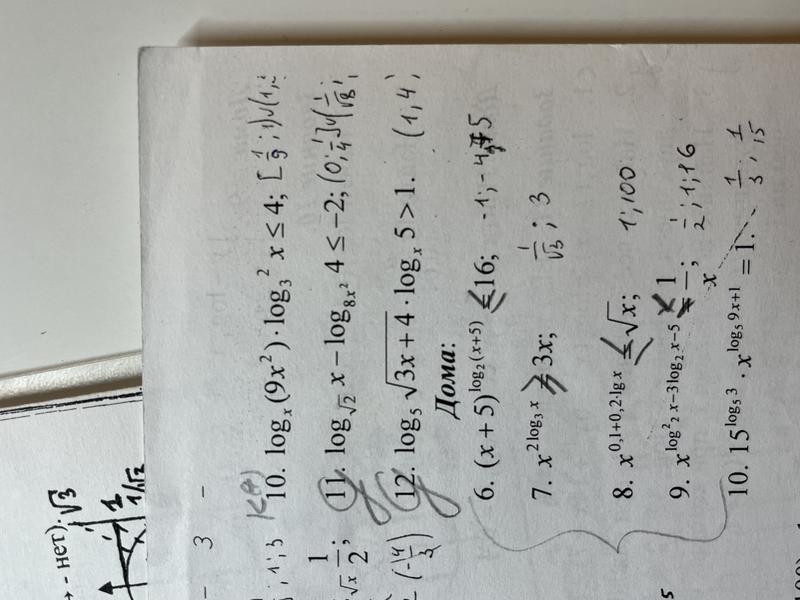 3 -
10. logₓ(9x²) · log₃² x ≤ 4; [1/9; 1)∪(1;
11. log_√2 x − log_8x² 4 ≤ −2; (0; 1/4]∪(1/√8;
12. log₅ √(3x+4) · logₓ 5 > 1. (1; 4)
Дома:
6. (x + 5)^(log₂(x+5)) ≤ 16; -1; -4
7. x^(2log₃ x) ≥ 3x; 1/√3; 3
8. x^(0,1+0,2·lg x) ≤ √x; 1; 100
9. x^(log₂² x−3log₂ x−5) < 1/x; 1/2; 1; 16
10. 15^(log₅ 3) · x^(log₅ 9x+1) = 1. 1/3; 1/15
- нет). √3
1
1/√2
; 1; 3
√x 1/2;
(-4/3)